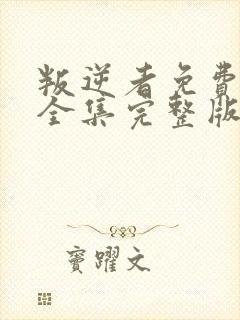 叛逆者免费
全集完整版
窦躍文